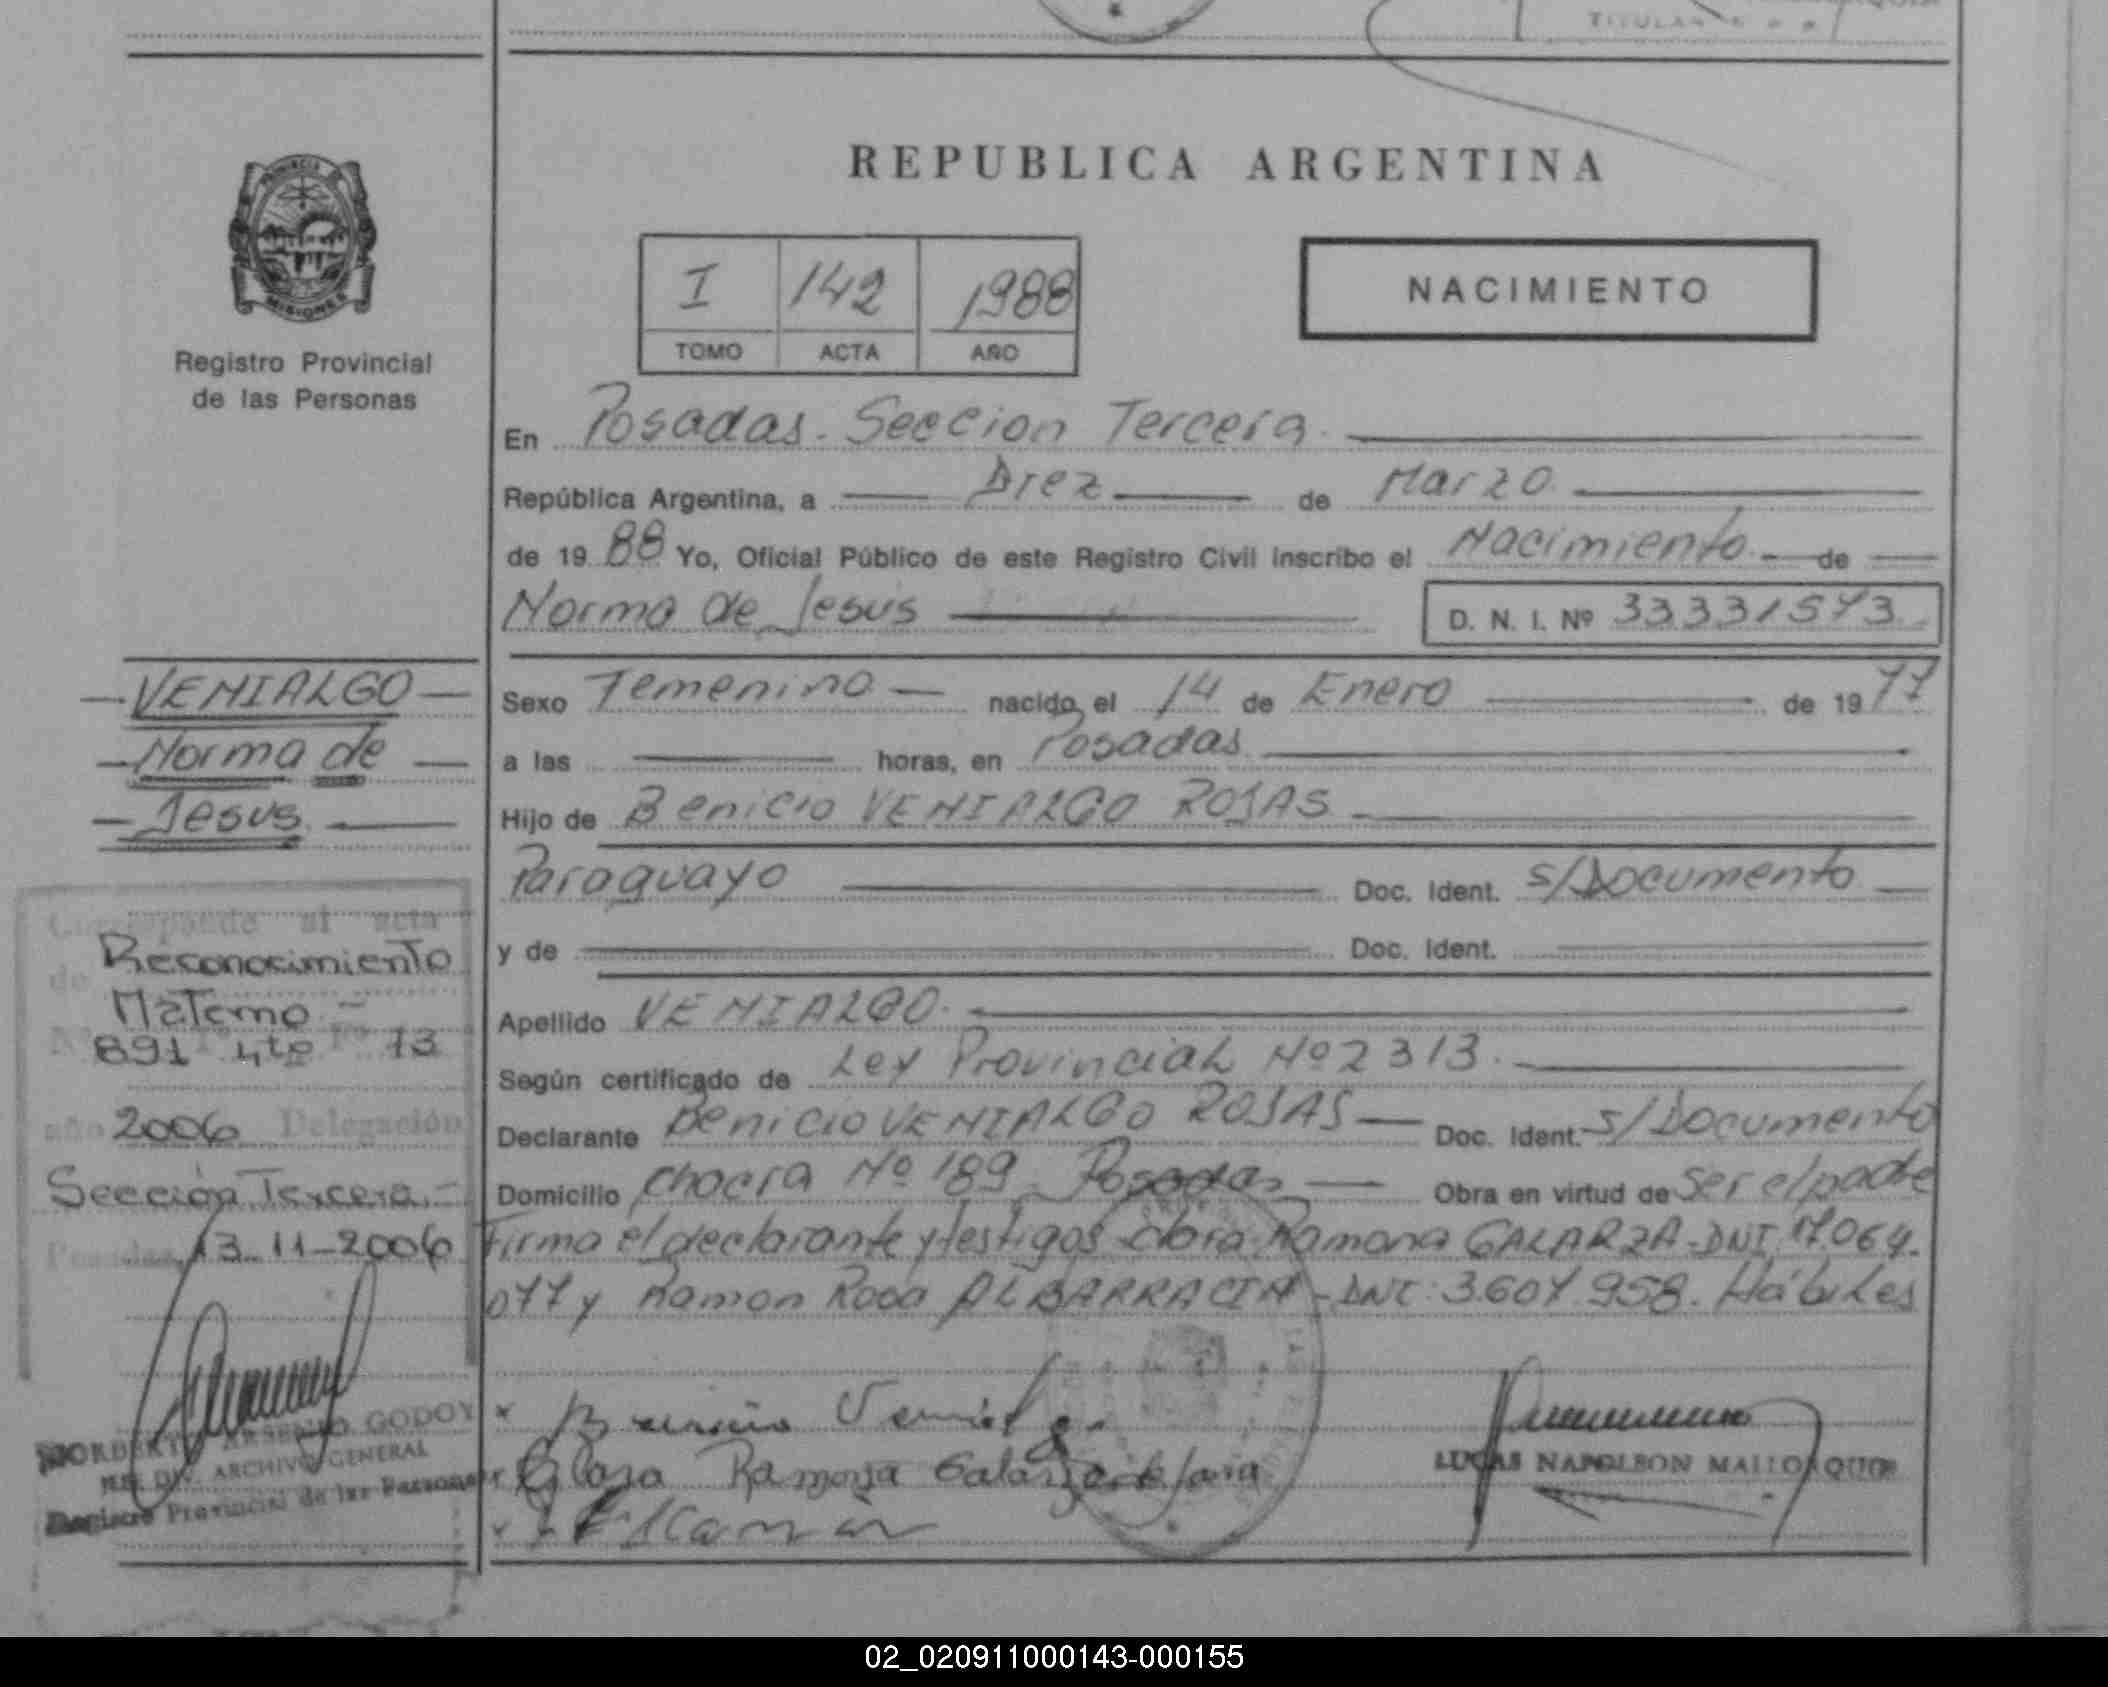 TITULAR
REPUBLICA ARGENTINA
PROVINCIA
MISIONES
Registro Provincial
de las Personas
I 142 1988
TOMO ACTA AÑO
NACIMIENTO
En Posadas. Seccion Tercera.
República Argentina, a Diez de Marzo.
de 19 88 Yo, Oficial Público de este Registro Civil inscribo el Nacimiento. de
Norma de Jesus D. N. I. Nº 33331573
VENIALGO
Norma de
Jesus
Sexo Femenino nacido el 14 de Enero de 19 77
a las horas, en Posadas
Hijo de Benicio VENIALGO ROJAS
Paraguayo Doc. Ident. s/Documento
y de Doc. Ident.
Apellido VENIALGO.
Según certificado de Ley Provincial Nº 2313.
Declarante Benicio VENIALGO ROJAS Doc. Ident. s/Documento
Domicilio chacra Nº 189 Posadas Obra en virtud de ser el padre
Firma el declarante y testigos clara Ramona GALARZA-DNI 17.064.
077 y Ramon Rosa ALBARRACIN-DNI: 3.607.958. Hábiles
Corresponde al acta
de Reconocimiento
Materno.-
Nº 891 Tº 4to Fº 73
año 2006 Delegación
Sección Tercera.-
Posadas, 13-11-2006
NORBERTO ARSENIO GODOY
DIV. ARCHIVO GENERAL
Registro Provincial de las Personas
Benicio Venialgo
Clara Ramona Galarza
LUCAS NAPOLEON MALLORQUIN
02_020911000143-000155